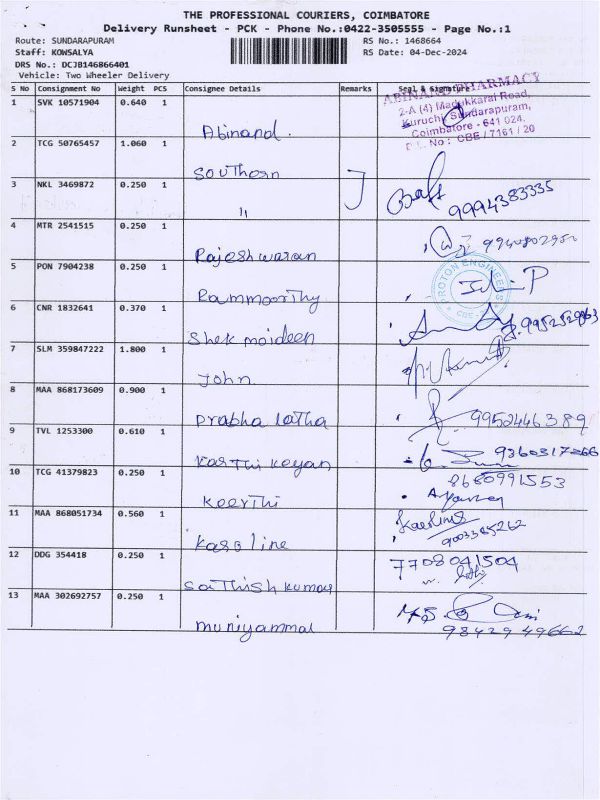 THE PROFESSIONAL COURIERS, COIMBATORE
Delivery Runsheet - PCK - Phone No.:0422-3505555 - Page No.:1
Route: SUNDARAPURAM
RS No.: 1468664
Staff: KOWSALYA
RS Date: 04-Dec-2024
DRS No.: DCJB146866401
Vehicle: Two Wheeler Delivery
S No Consignment No Weight PCS Consignee Details Remarks Seal & Signature
ABINAND PHARMACY
2-A (4) Madukkarai Road,
Kuruchi, Sundarapuram,
Coimbatore - 641 024.
D.L. No : CBE / 7161 / 20
1 SVK 10571904 0.640 1
Abinand.
2 TCG 50765457 1.060 1
Southern
3 NKL 3469872 0.250 1
"
9994383335
4 MTR 2541515 0.250 1
Rajeshwaran
5 PON 7904238 0.250 1
Rammoorthy
PROTON ENGINEERS
CBE
6 CNR 1832641 0.370 1
Shek moideen
7 SLM 359847222 1.800 1
John
8 MAA 868173609 0.900 1
Prabha latha
9952446389
9 TVL 1253300 0.610 1
Karthikeyan
9360317266
10 TCG 41379823 0.250 1
8680991553
Keerthi
11 MAA 868051734 0.560 1
Karoline
9003385262
12 DDG 354418 0.250 1
7708041504
Sathish kumar
13 MAA 302692757 0.250 1
muniyammal
9842949662